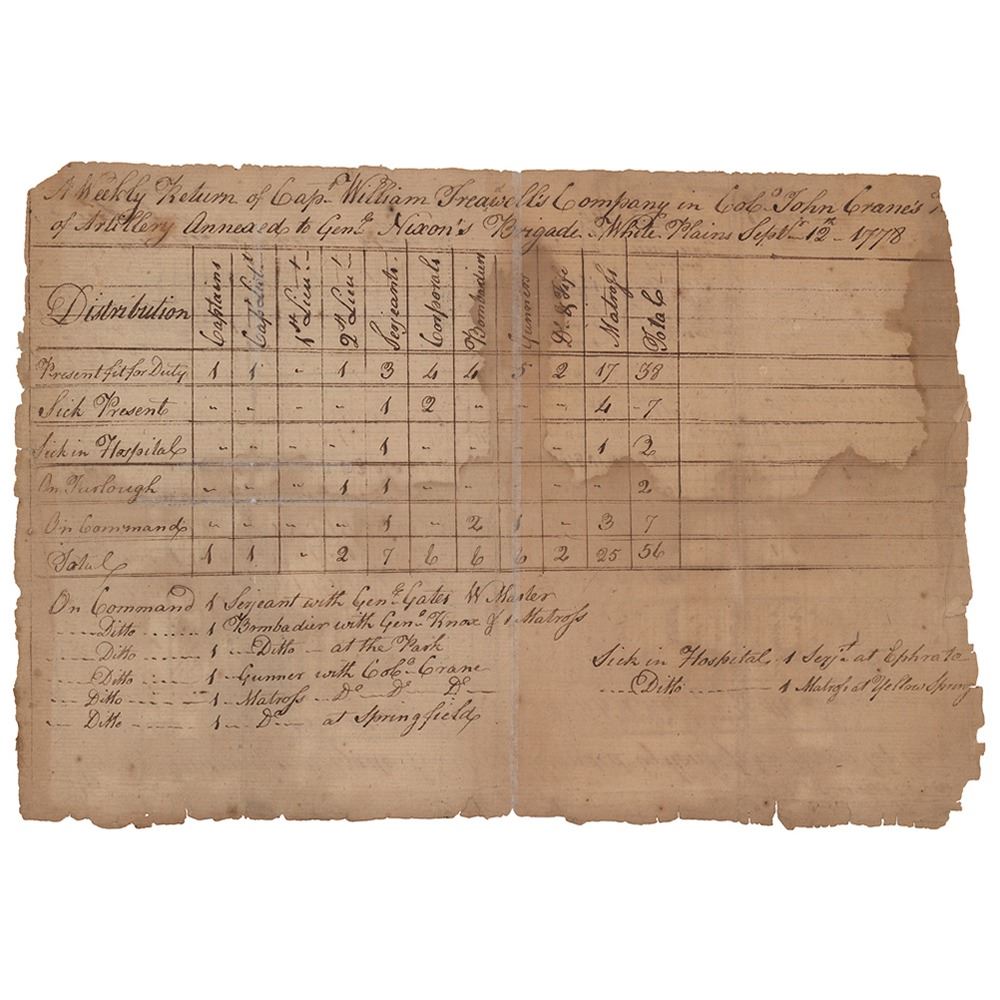 A Weekly Return of Capt. William Treadwell's Company in Colo. John Crane's
of Artillery Annexed to Genl. Nixon's Brigade. White Plains Septr. 12th - 1778
Distribution Captains Capt. Lieut 1st Lieut 2d Lieut Serjeants Corporals Bombadiers Gunners Dr. & Fife Matross Total
Present fit for Duty 1 1 - 1 3 4 4 5 2 17 38
Sick Present - - - - 1 2 - - - 4 7
Sick in Hospital - - - - 1 - - - - 1 2
On Furlough - - - 1 1 - - - - - 2
On Command - - - - 1 - 2 1 - 3 7
Total 1 1 - 2 7 6 6 6 2 25 56
On Command 1 Serjeant with Genl. Gates W Master
Ditto 1 Bombadier with Genl. Knox & 1 Matross
Ditto 1 Ditto at the Park
Ditto 1 Gunner with Colo. Crane
Ditto 1 Matross Do Do Do
Ditto 1 Do at Springfield
Sick in Hospital 1 Serjt. at Ephrata
Ditto 1 Matross at Yellow Spring